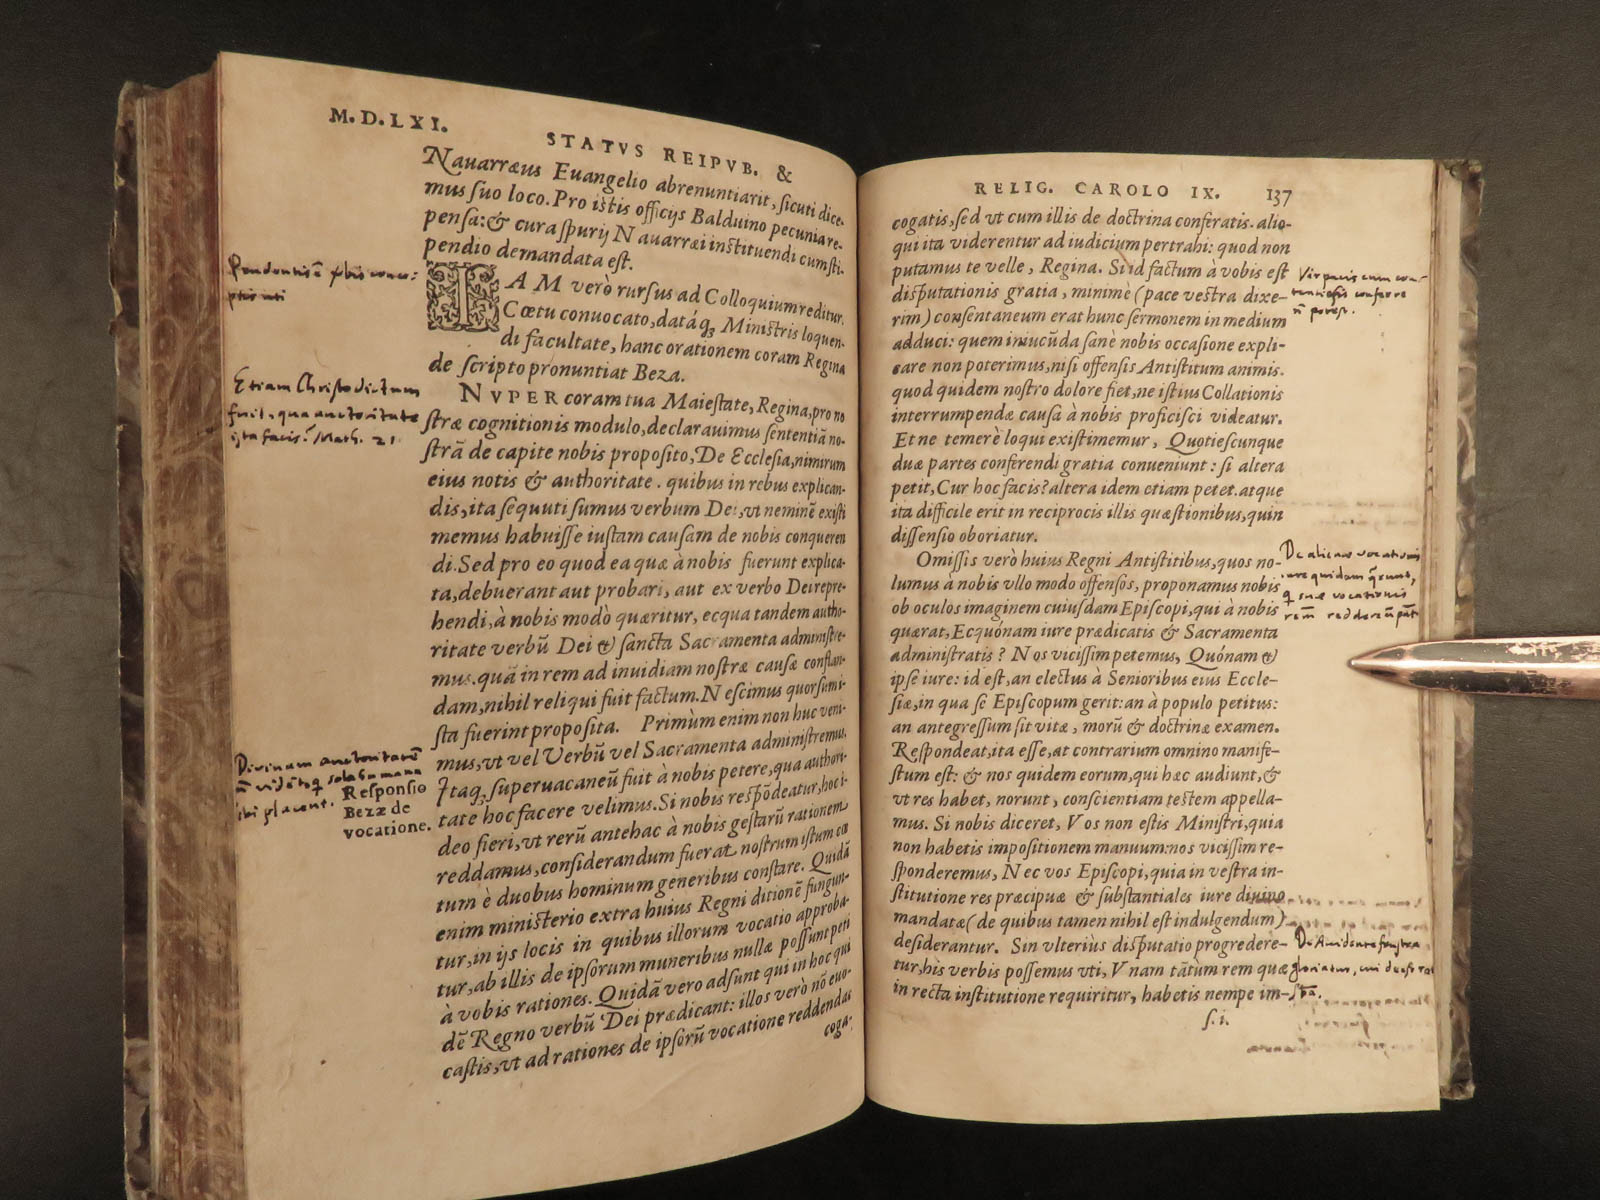 M. D. LXI.
STATVS REIPVB. &
Nauarræus Euangelio abrenuntiarit, sicuti dice-
mus suo loco. Pro istis officijs Balduino pecunia re-
pensa: & cura spurij Nauarræi instituendi cum sti-
pendio demandata est.
IAM verò rursus ad Colloquium reditur.
Cœtu conuocato, datáq; Ministris loquen-
di facultate, hanc orationem coram Regina
de scripto pronuntiat Beza.
Etiam Christo dictum
fuit, qua auctoritate
ista facis? Math. 21.
NVPER coram tua Maiestate, Regina, pro no
stræ cognitionis modulo, declarauimus sententiã no-
strã de capite nobis proposito, De Ecclesia, nimirum
eius notis & authoritate. quibus in rebus explican-
dis, ita sequuti sumus verbum Dei, vt neminẽ existi
memus habuisse iustam causam de nobis conqueren
di. Sed pro eo quod ea quæ à nobis fuerunt explica-
ta, debuerant aut probari, aut ex verbo Dei repre-
hendi, à nobis modò quæritur, ecqua tandem autho-
ritate verbũ Dei & sancta Sacramenta administre-
mus. quã in rem ad inuidiam nostræ causæ conflan-
dam, nihil reliqui fuit factum. Nescimus quorsum i-
sta fuerint proposita. Primùm enim non huc veni-
mus, vt vel Verbũ vel Sacramenta administremus.
Itaq, superuacaneũ fuit à nobis petere, qua authori-
tate hoc facere velimus. Si nobis respõdeatur, hoc i-
deo fieri, vt rerũ antehac à nobis gestarũ rationem
reddamus, considerandum fuerat nostrum istum cœ
tum è duobus hominum generibus constare. Quidã
enim ministerio extra huius Regni ditionẽ fungun-
tur, in ijs locis in quibus illorum vocatio approba-
tur, ab illis de ipsorum muneribus nullæ possunt peti
à vobis rationes. Quidã vero adsunt qui in hoc qui
dẽ Regno verbũ Dei prædicant: illos verò nõ euo-
castis, vt ad rationes de ipsorũ vocatione reddendas
coga-
Responsio
Bezæ de
vocatione.
RELIG. CAROLO IX. 137
cogatis, sed vt cum illis de doctrina conferatis. alio-
qui ita viderentur ad iudicium pertrahi: quod non
putamus te velle, Regina. Si id factum à vobis est
disputationis gratia, minimè (pace vestra dixe-
rim) consentaneum erat hunc sermonem in medium
adduci: quem iniucũda sanè nobis occasione expli-
care non poterimus, nisi offensis Antistitum animis.
quod quidem nostro dolore fiet, ne istius Collationis
interrumpendæ causa à nobis proficisci videatur.
Et ne temerè loqui existimemur, Quotiescunque
duæ partes conferendi gratia conueniunt: si altera
petit, Cur hoc facis? altera idem etiam petet. atque
ita difficile erit in reciprocis illis quæstionibus, quin
dissensio oboriatur.
Omissis verò huius Regni Antistitibus, quos no-
lumus à nobis vllo modo offensos, proponamus nobis
ob oculos imaginem cuiusdam Episcopi, qui à nobis
quærat, Ecquónam iure prædicatis & Sacramenta
administratis? Nos vicissim petemus, Quónam &
ipse iure: id est, an electus à Senioribus eius Eccle-
siæ, in qua sē Episcopum gerit: an à populo petitus:
an antegressum sit vitæ, morũ & doctrinæ examen.
Respondeat, ita esse, at contrarium omnino manife-
stum est: & nos quidem eorum, qui hæc audiunt, &
vt res habet, norunt, conscientiam testem appella-
mus. Si nobis diceret, Vos non estis Ministri, quia
non habetis impositionem manuum: nos vicissim re-
sponderemus, Nec vos Episcopi, quia in vestra in-
stitutione res præcipuæ & substantiales iure diuino
mandatæ (de quibus tamen nihil est indulgendum)
desiderantur. Sin vlteriùs disputatio progredere-
tur, his verbis possemus vti, Vnam tãtum rem quæ
in recta institutione requiritur, habetis nempe im-
s.i.